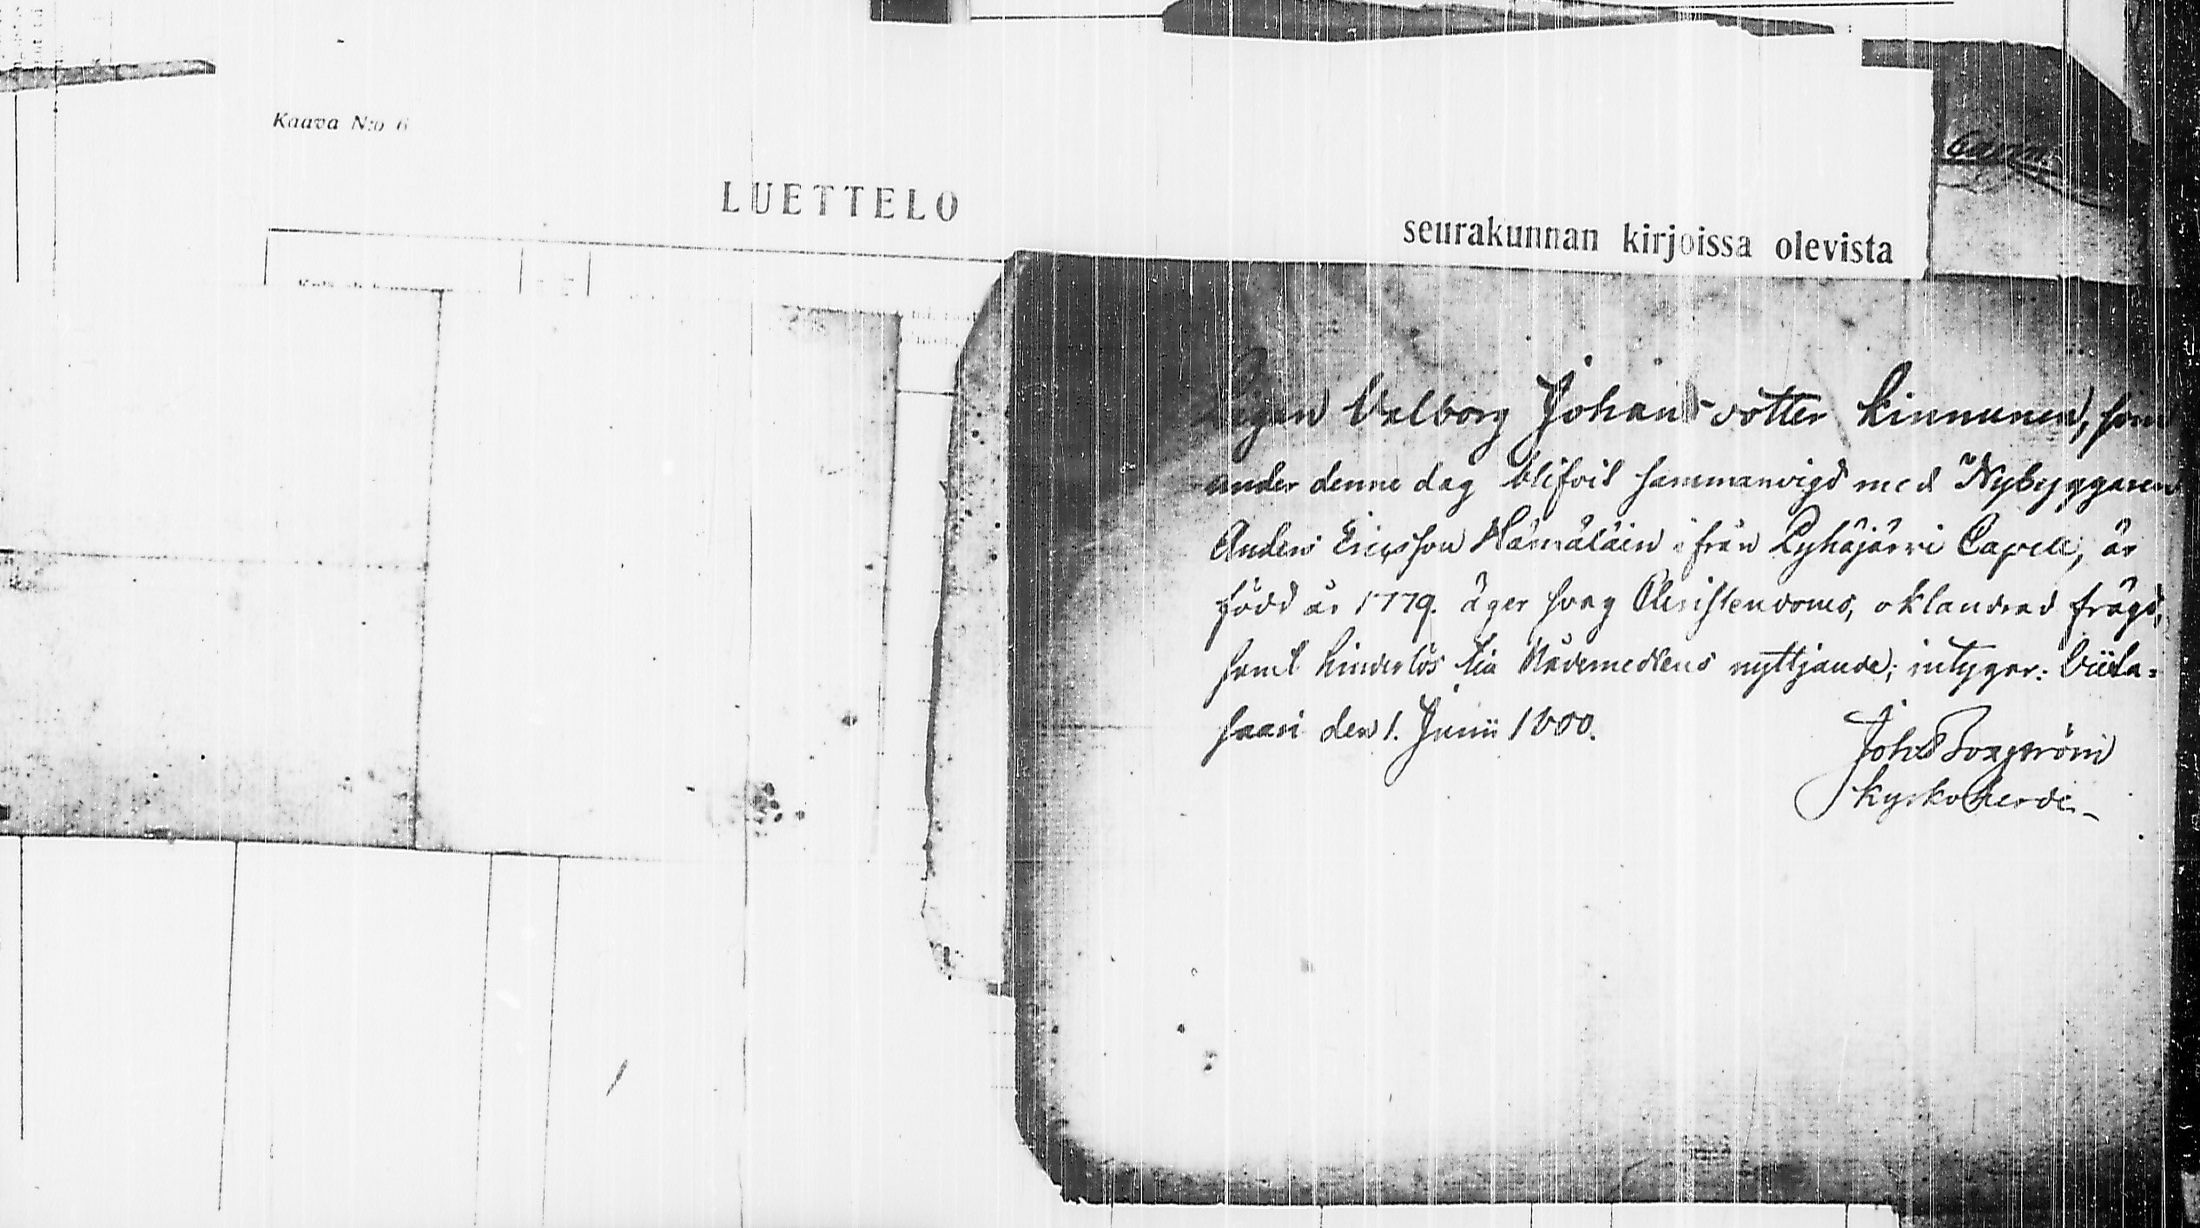 Kaava N:o 6
LUETTELO
seurakunnan kirjoissa olevista
Pigan Valborg Johansdotter Kinnunen, som
under denne dag blifvit sammanvigd med Nybyggaren
Anders Ericsson Hämäläin ifrån Pyhäjärvi Capell, är
född år 1779. äger svag Christendoms, oklandrad frägd,
samt hinderlös til Nådemedlens nyttjande; intygar: Viita-
saari den 1. Junii 1800.
Joh Borgström
Kyrkoherde